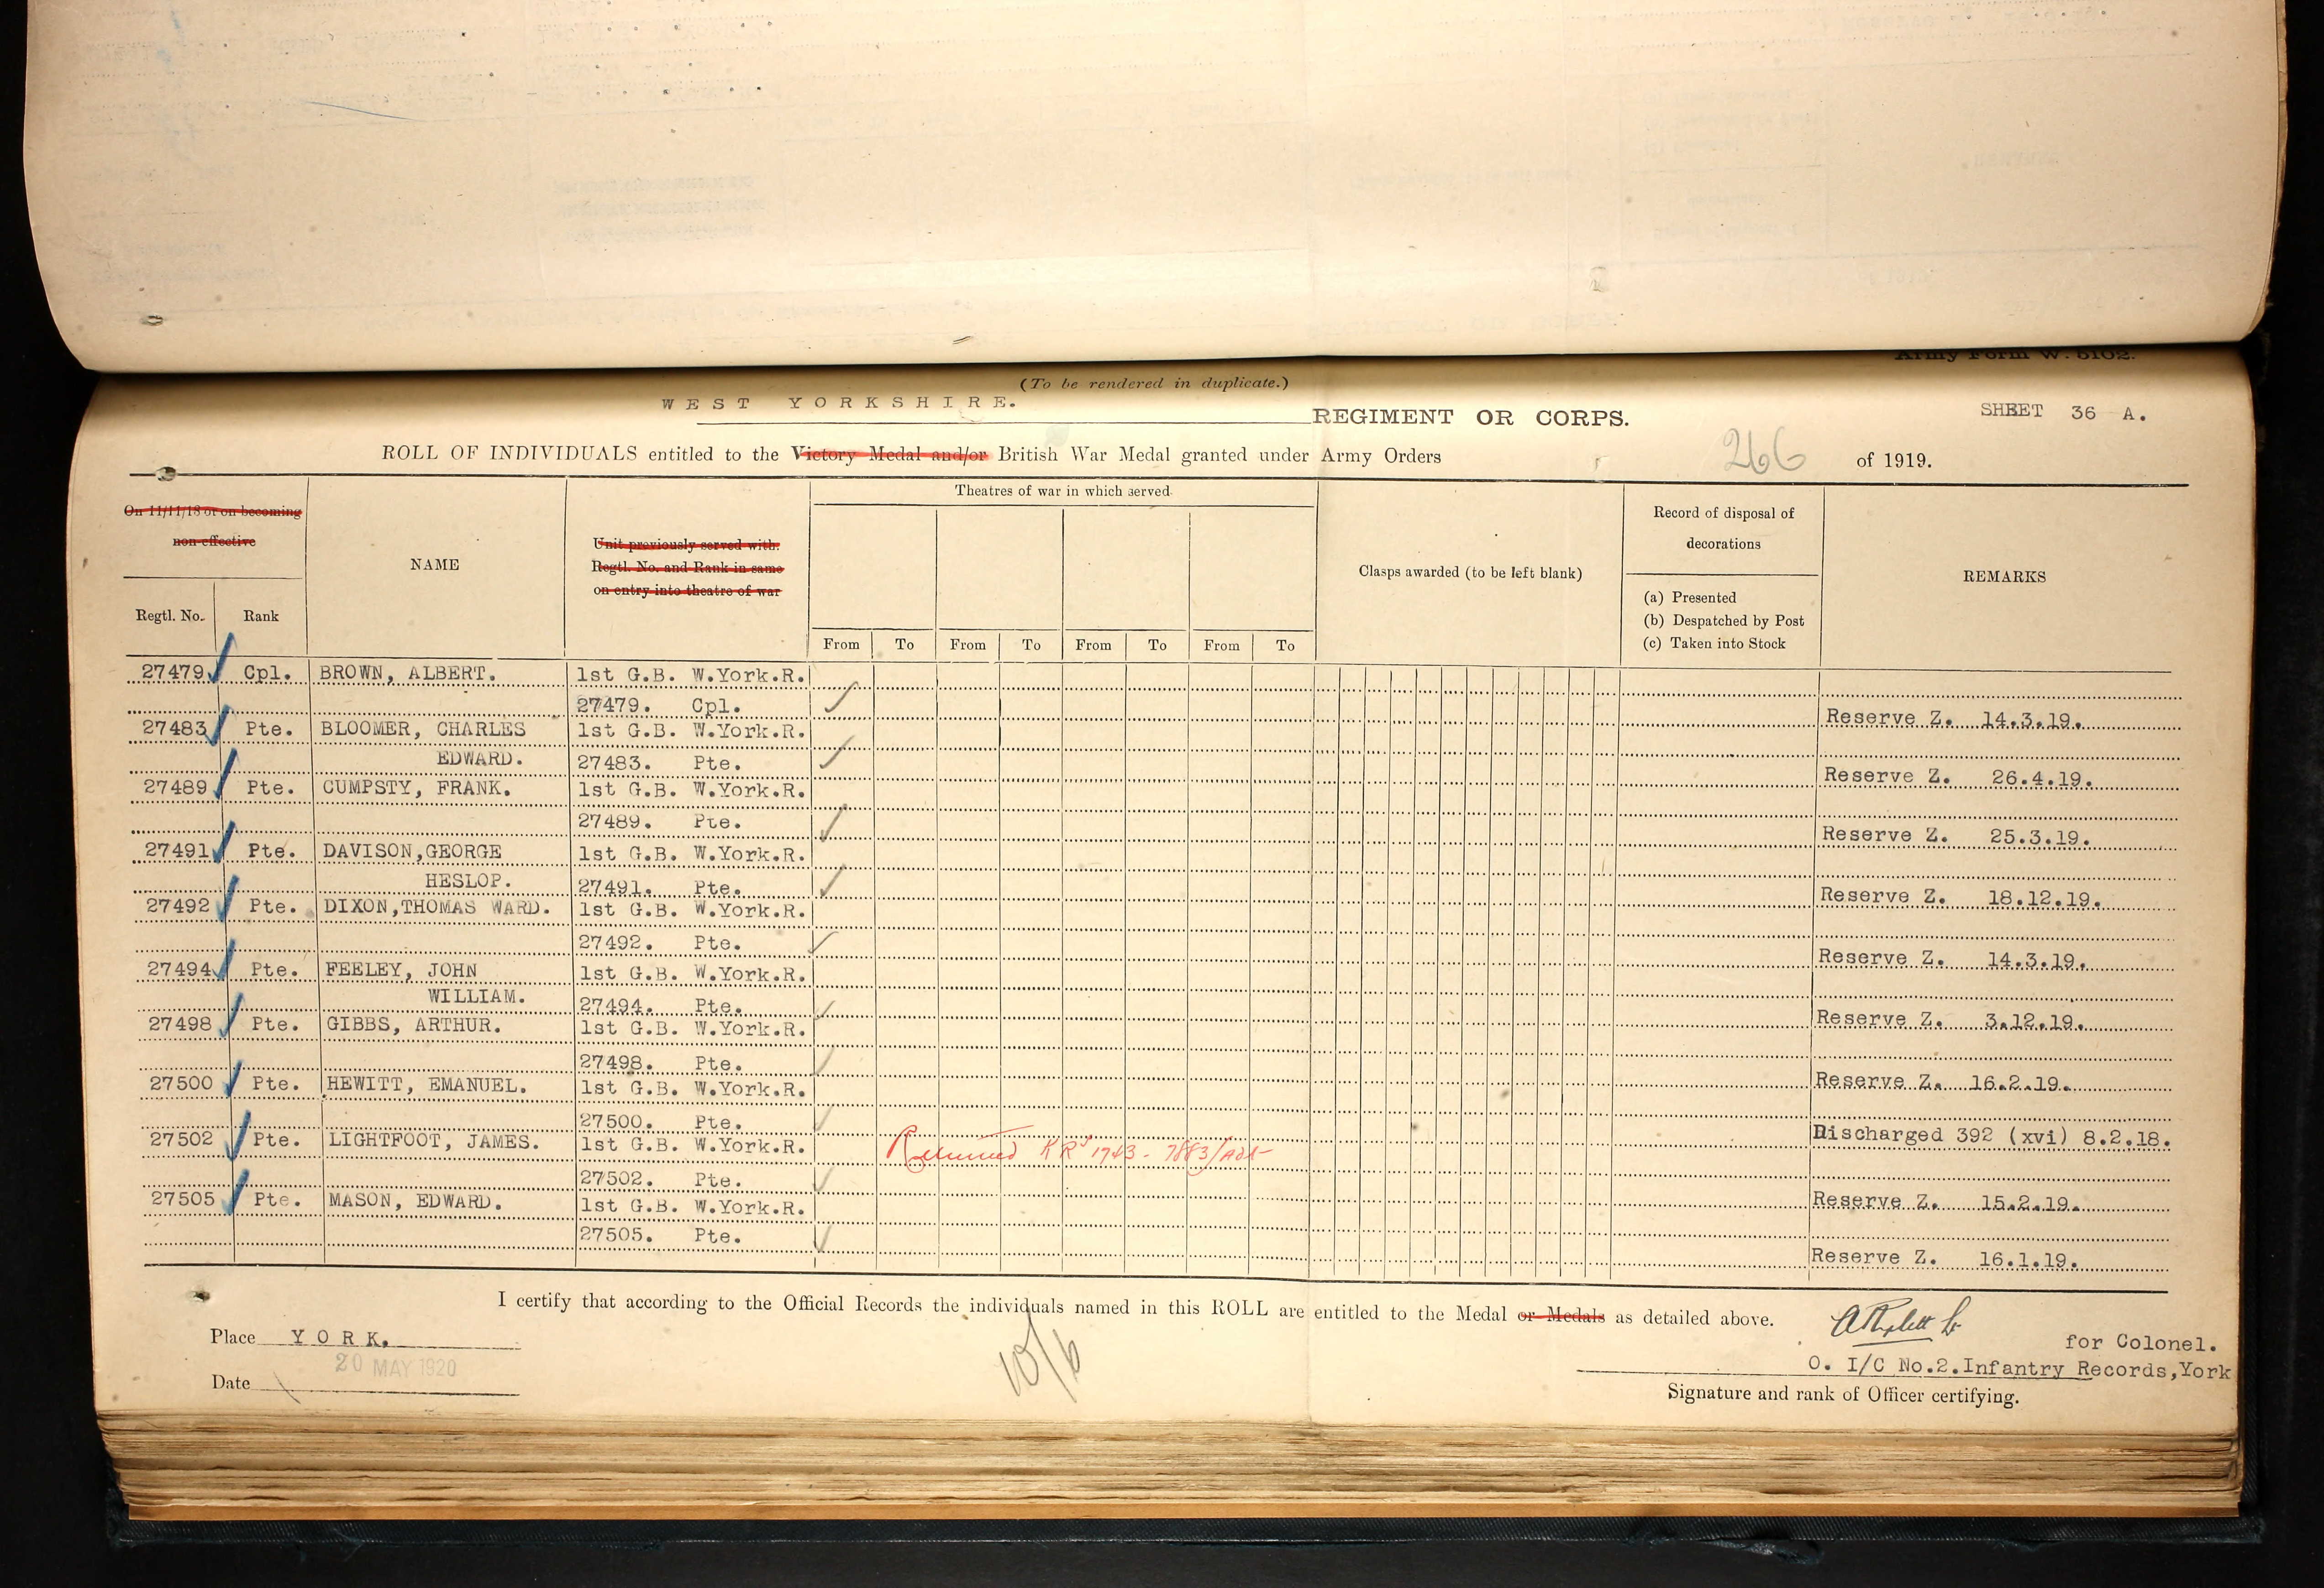 Army Form W. 5102.
(To be rendered in duplicate.)
WEST YORKSHIRE. REGIMENT OR CORPS. SHEET 36 A.
ROLL OF INDIVIDUALS entitled to the Victory Medal and/or British War Medal granted under Army Orders 266 of 1919.
On 11/11/18 or on becoming non-effective
Regtl. No. Rank
NAME
Unit previously served with.
Regtl. No. and Rank in same
on entry into theatre of war
Theatres of war in which served
From To From To From To From To
Clasps awarded (to be left blank)
Record of disposal of
decorations
(a) Presented
(b) Despatched by Post
(c) Taken into Stock
REMARKS
27479 Cpl. BROWN, ALBERT. 1st G.B. W.York.R.
27479. Cpl. ✓ Reserve Z. 14.3.19.
27483 Pte. BLOOMER, CHARLES 1st G.B. W.York.R.
EDWARD. 27483. Pte. ✓ Reserve Z. 26.4.19.
27489 Pte. CUMPSTY, FRANK. 1st G.B. W.York.R.
27489. Pte. ✓ Reserve Z. 25.3.19.
27491 Pte. DAVISON,GEORGE 1st G.B. W.York.R.
HESLOP. 27491. Pte. ✓ Reserve Z. 18.12.19.
27492 Pte. DIXON,THOMAS WARD. 1st G.B. W.York.R.
27492. Pte. ✓ Reserve Z. 14.3.19.
27494 Pte. FEELEY, JOHN 1st G.B. W.York.R.
WILLIAM. 27494. Pte. ✓ Reserve Z. 3.12.19.
27498 Pte. GIBBS, ARTHUR. 1st G.B. W.York.R.
27498. Pte. ✓ Reserve Z. 16.2.19.
27500 Pte. HEWITT, EMANUEL. 1st G.B. W.York.R.
27500. Pte. ✓ Discharged 392 (xvi) 8.2.18.
27502 Pte. LIGHTFOOT, JAMES. 1st G.B. W.York.R. Returned KRs 1743 - 7883/Adt
27502. Pte. ✓ Reserve Z. 15.2.19.
27505 Pte. MASON, EDWARD. 1st G.B. W.York.R.
27505. Pte. ✓ Reserve Z. 16.1.19.
I certify that according to the Official Records the individuals named in this ROLL are entitled to the Medal or Medals as detailed above.
Place YORK.
Date 20 MAY 1920
10/6
for Colonel.
O. I/C No.2.Infantry Records,York
Signature and rank of Officer certifying.